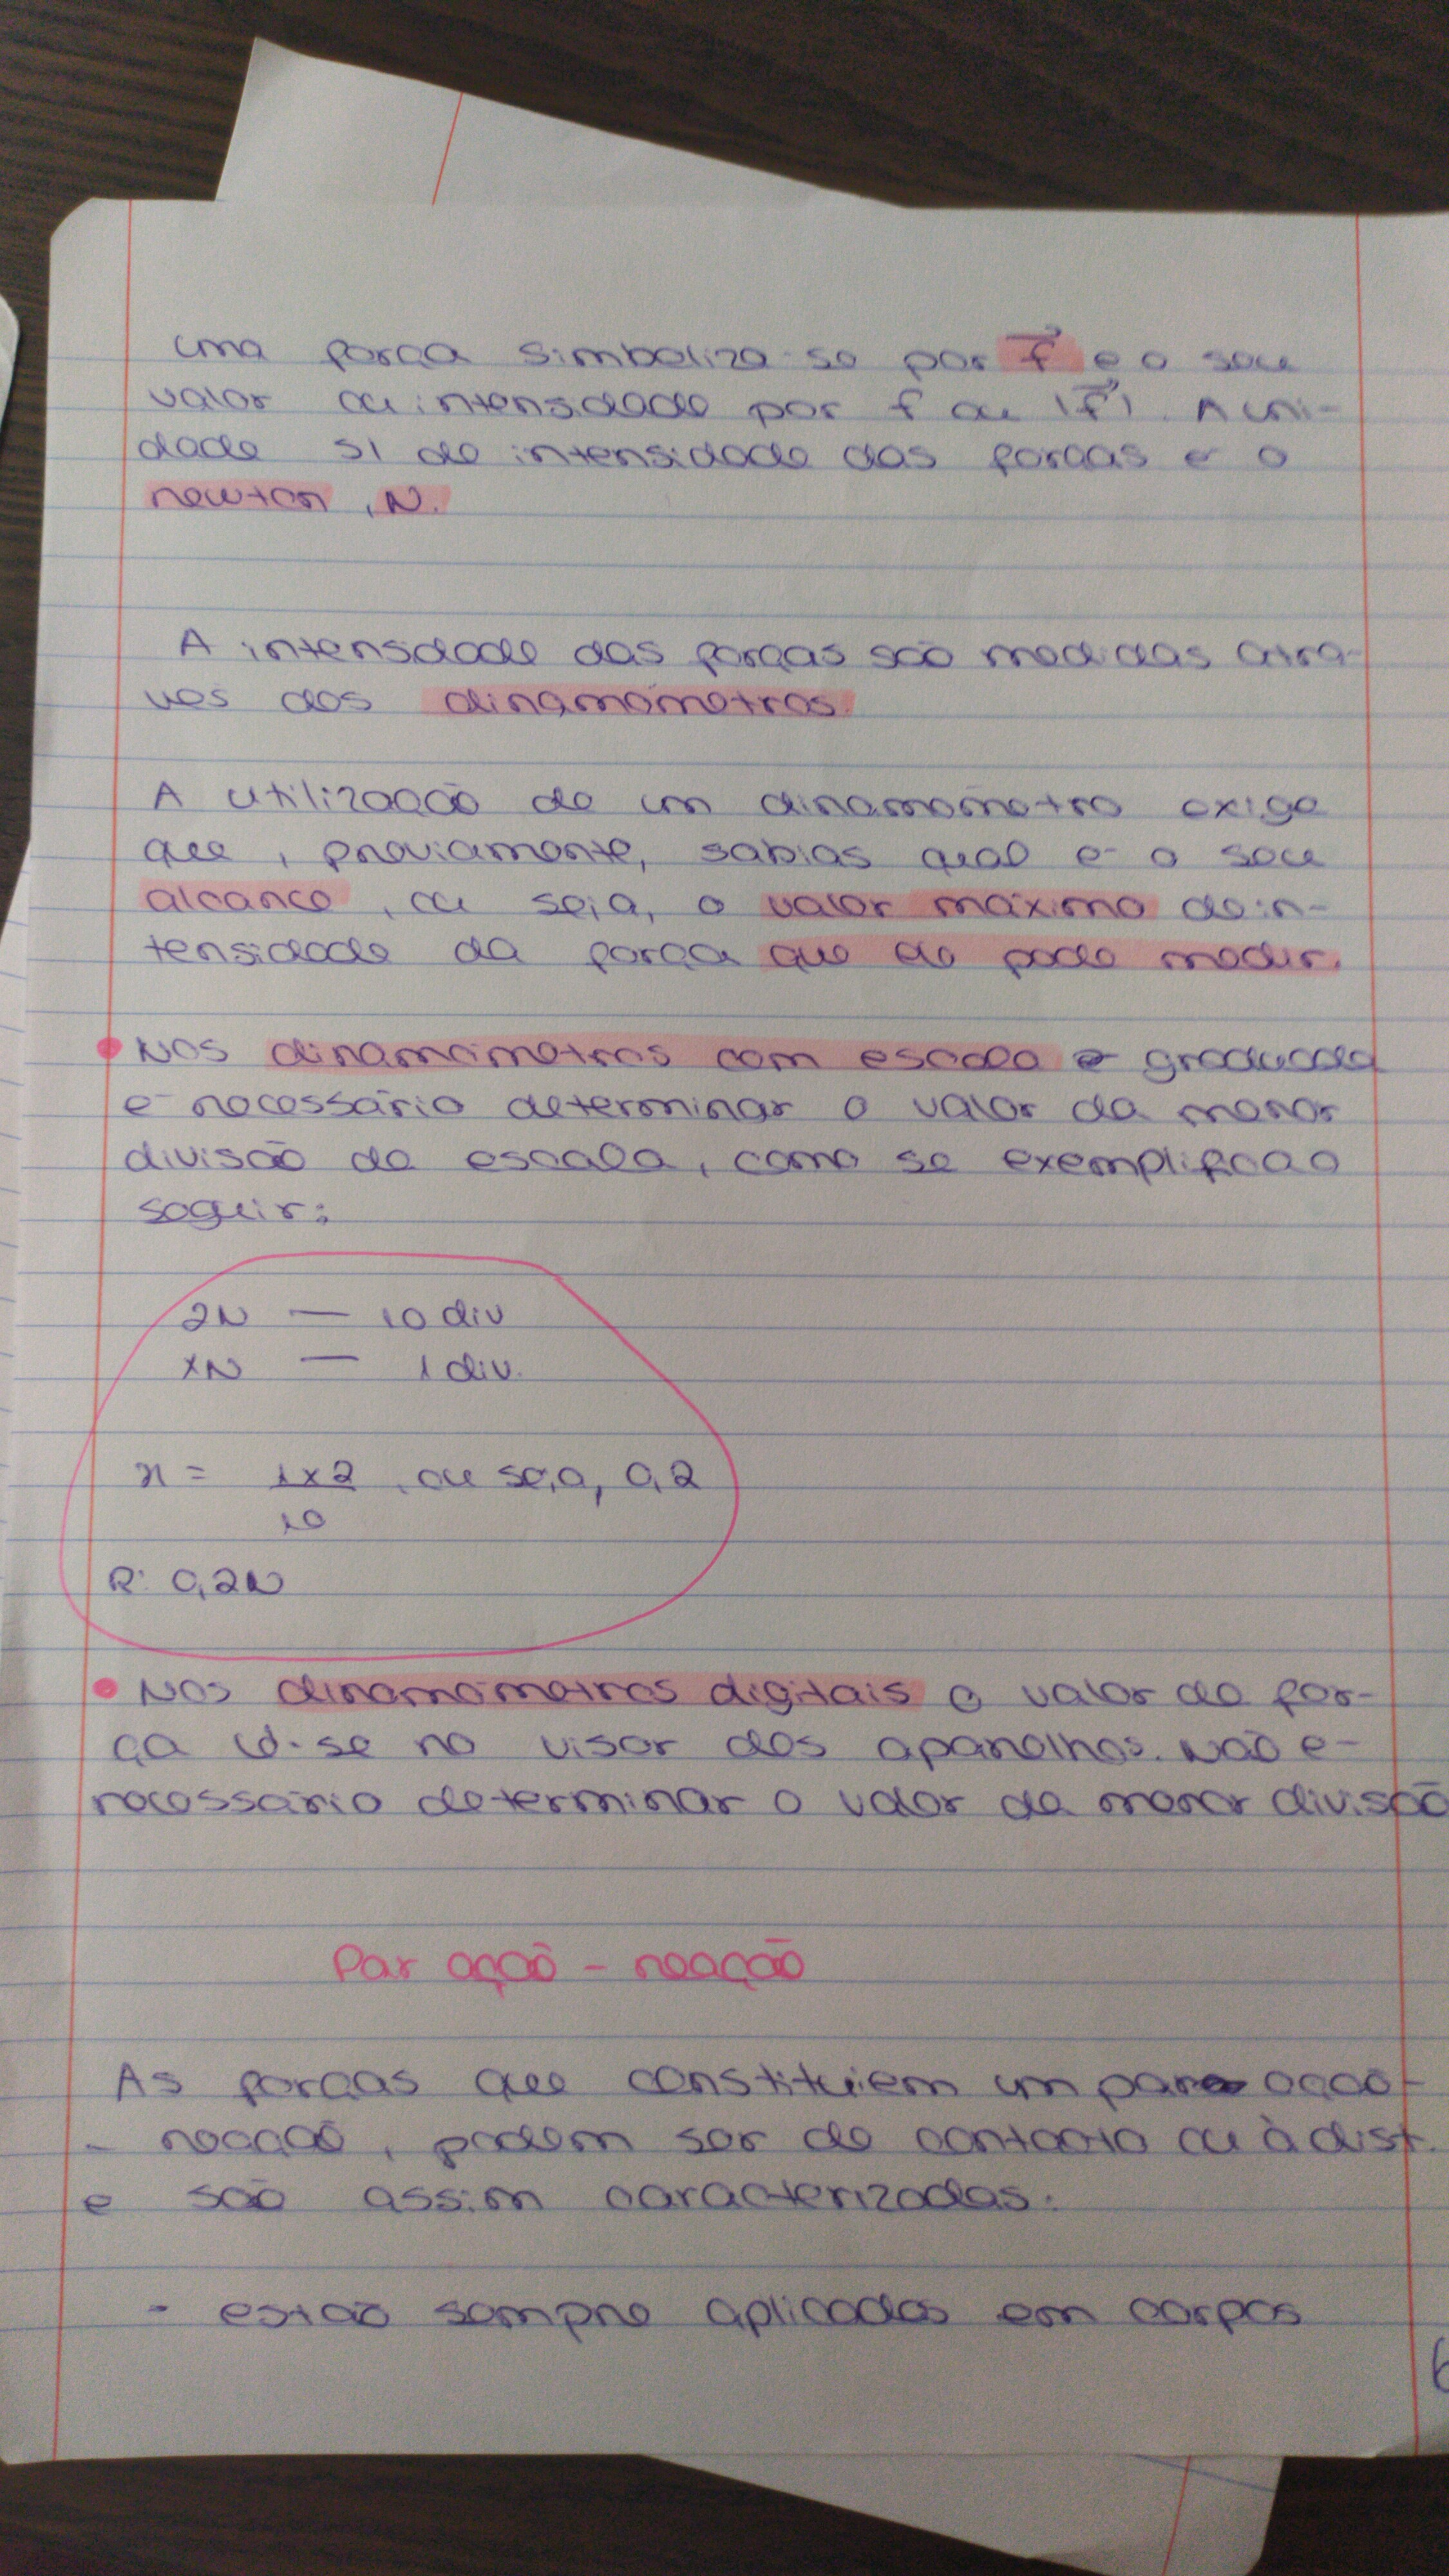 Uma força simboliza-se por F⃗ e o seu
valor ou intensidade por F ou |F⃗|. A uni-
dade SI de intensidade das forças é o
newton, N.
A intensidade das forças são medidas atra-
vés dos dinamómetros.
A utilização de um dinamómetro exige
que, previamente, sabias qual é o seu
alcance, ou seja, o valor máximo de in-
tensidade da força que ele pode medir.
• Nos dinamómetros com escala e graduada
é necessário determinar o valor da menor
divisão da escala, como se exemplifica a
seguir:
2N — 10 div
xN — 1 div.
x = 1x2, ou seja, 0,2
10
R: 0,2N
• Nos dinamómetros digitais o valor da for-
ça lê-se no visor dos aparelhos. Não é
necessário determinar o valor da menor divisão
Par ação - reação
As forças que constituem um par ação
- reação, podem ser de contacto ou à dist.
e são assim caracterizadas:
- estão sempre aplicadas em corpos